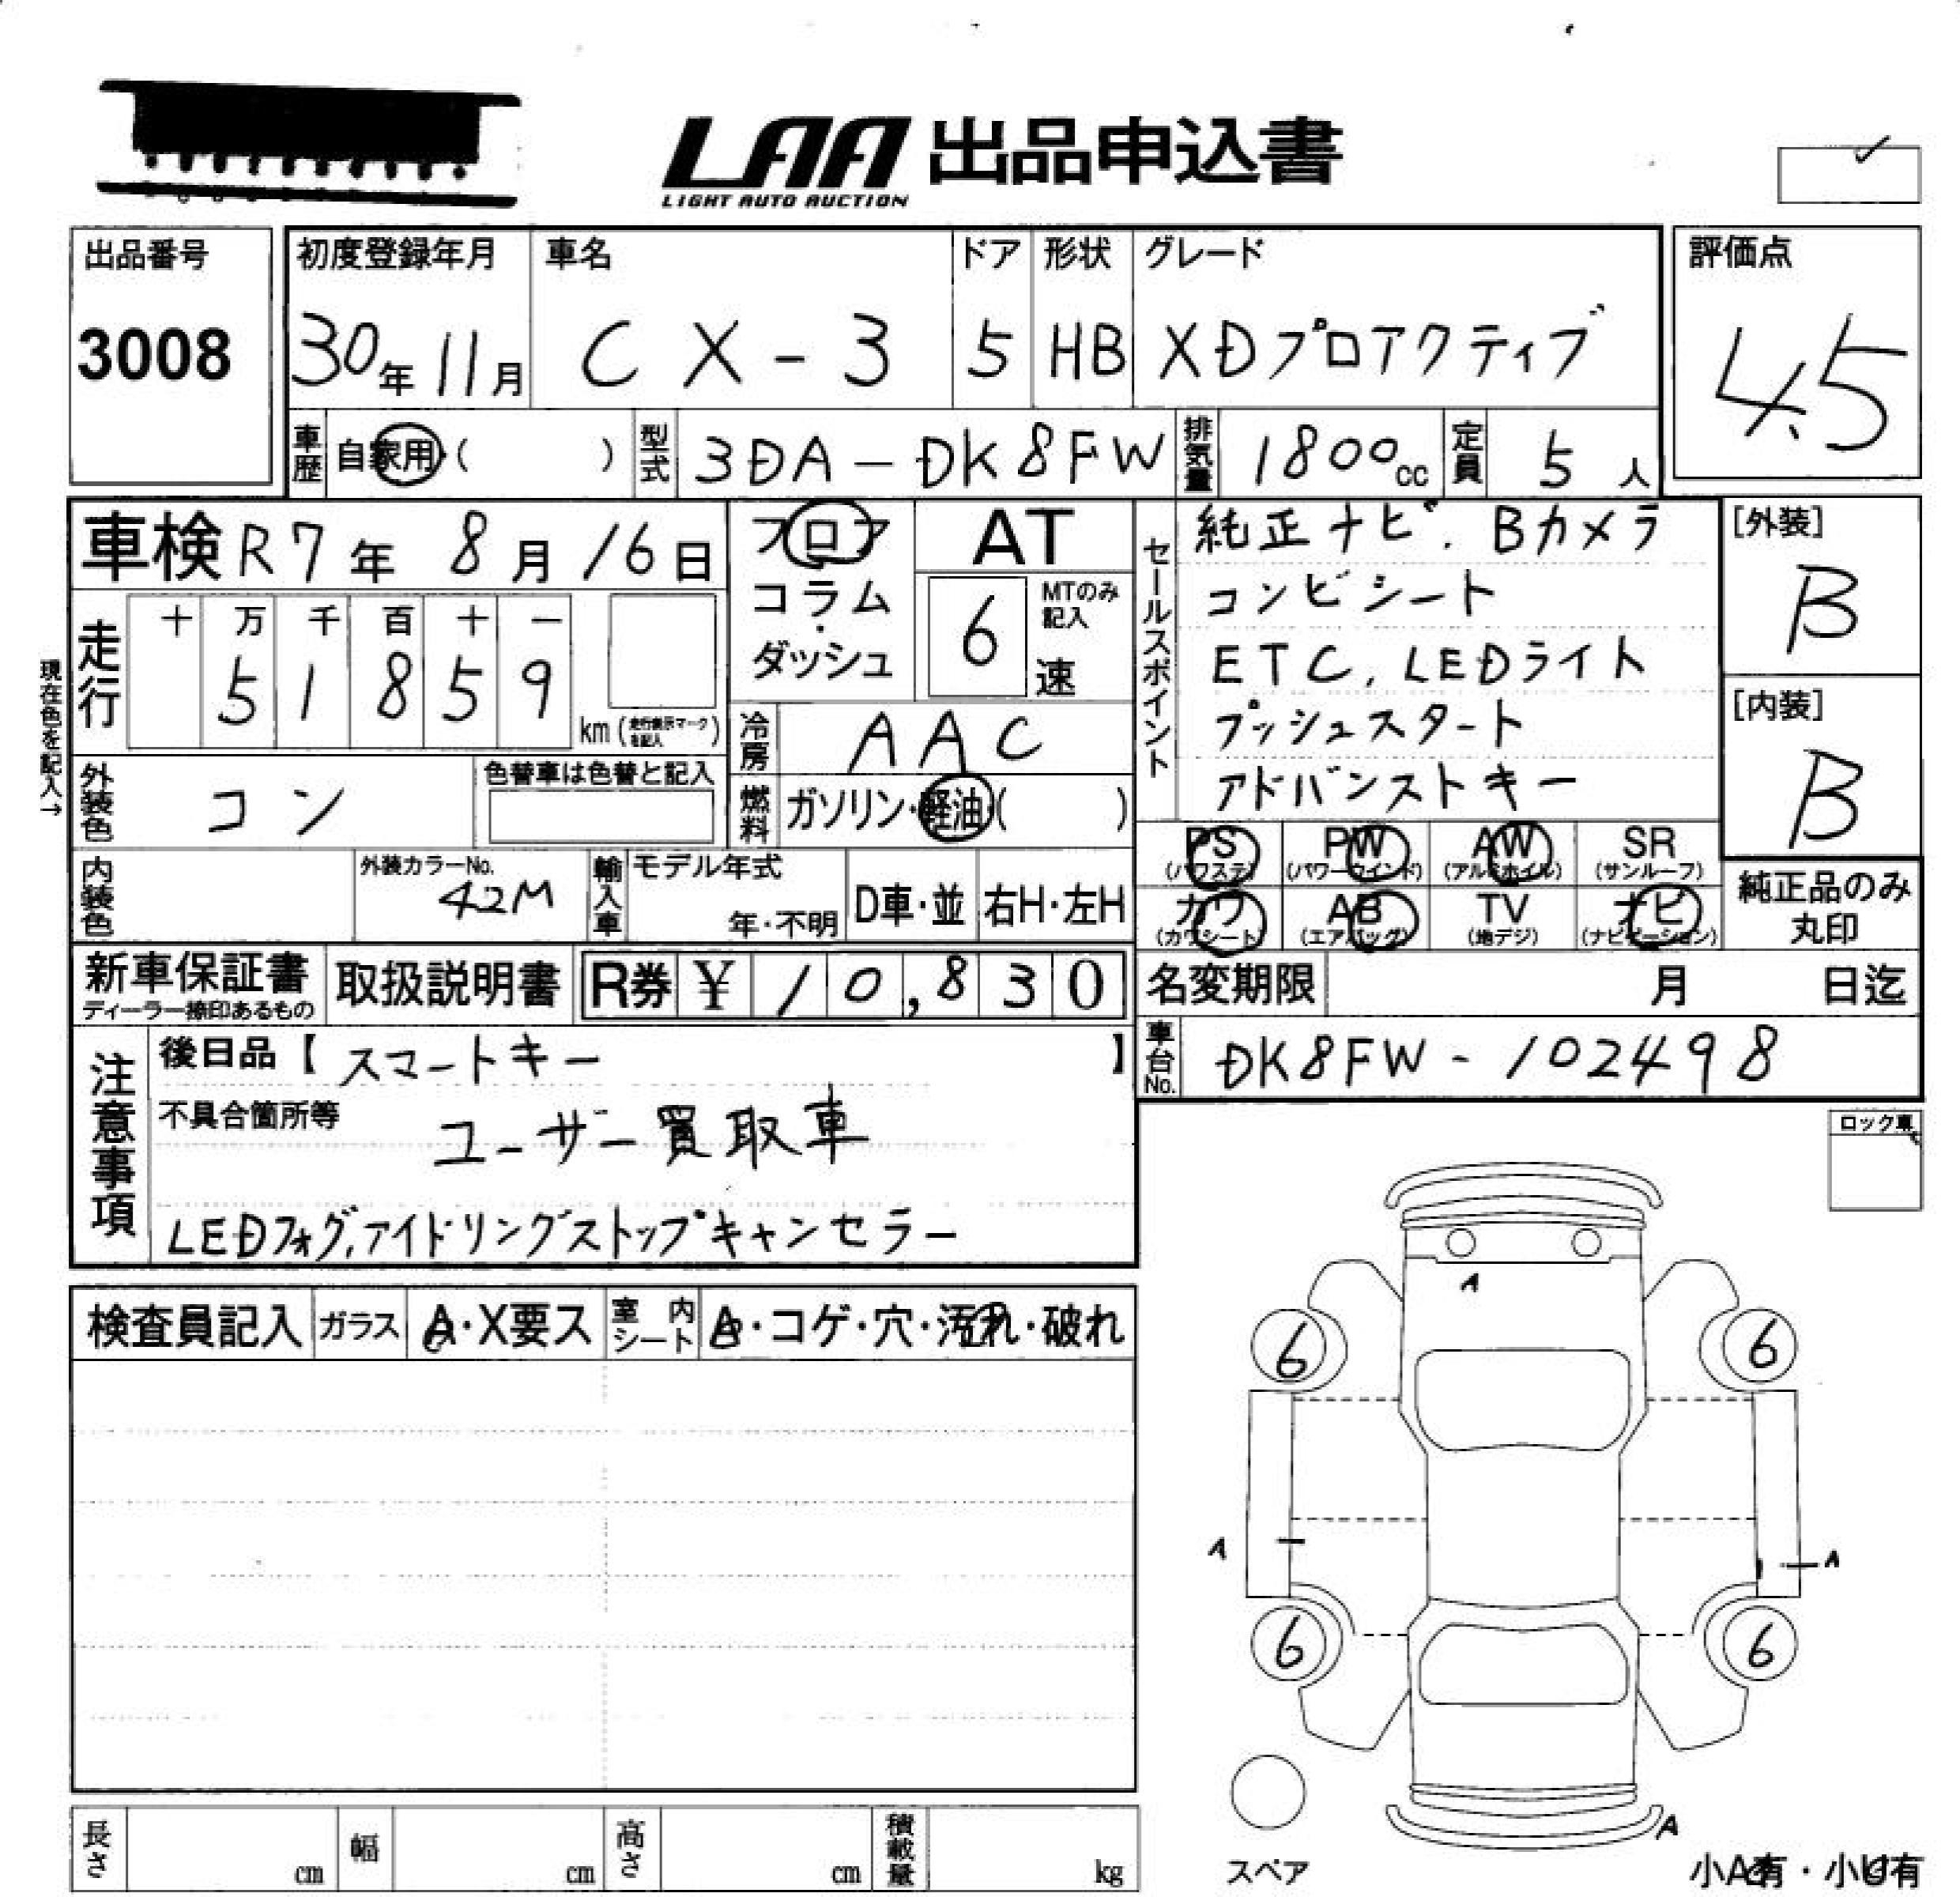 LAA 出品申込書
LIGHT AUTO AUCTION
出品番号
3008
初度登録年月
30年 11月
車名
CX-3
ドア
5
形状
HB
グレード
XDプロアクティブ
評価点
4.5
車歴 自家用・( )
型式 3DA-DK8FW
排気量 1800cc
定員 5人
車検 R7年 8月 16日
走行
十 万 千 百 十 一
5 1 8 5 9
km(走行表示マークを記入)
現在色を記入→
フロア
コラム
・
ダッシュ
AT
6
MTのみ記入
速
冷房 AAC
燃料 ガソリン・軽油・( )
外装色 コン
色替車は色替と記入
内装色
外装カラーNo.
42M
輸入車 モデル年式
年・不明
D車・並
右H・左H
セールスポイント
純正ナビ.Bカメラ
コンビシート
ETC,LEDライト
プッシュスタート
アドバンストキー
[外装]
B
[内装]
B
PS
(パワステ)
PW
(パワーウインド)
AW
(アルミホイル)
SR
(サンルーフ)
カワ
(カワシート)
AB
(エアバッグ)
TV
(地デジ)
ナビ
(ナビゲーション)
純正品のみ
丸印
新車保証書
ディーラー捺印あるもの
取扱説明書
R券 ¥ 10,830
名変期限 月 日迄
車台No. DK8FW-102498
注意事項
後日品【 スマートキー 】
不具合箇所等
ユーザー買取車
LEDフォグ,アイドリングストップキャンセラー
ロック車
検査員記入
ガラス
A・X要ス
室内シート
・コゲ・穴・汚れ・破れ
A
6
6
A
A
6
6
A
スペア
小A有・小U有
長さ cm
幅 cm
高さ cm
積載量 kg